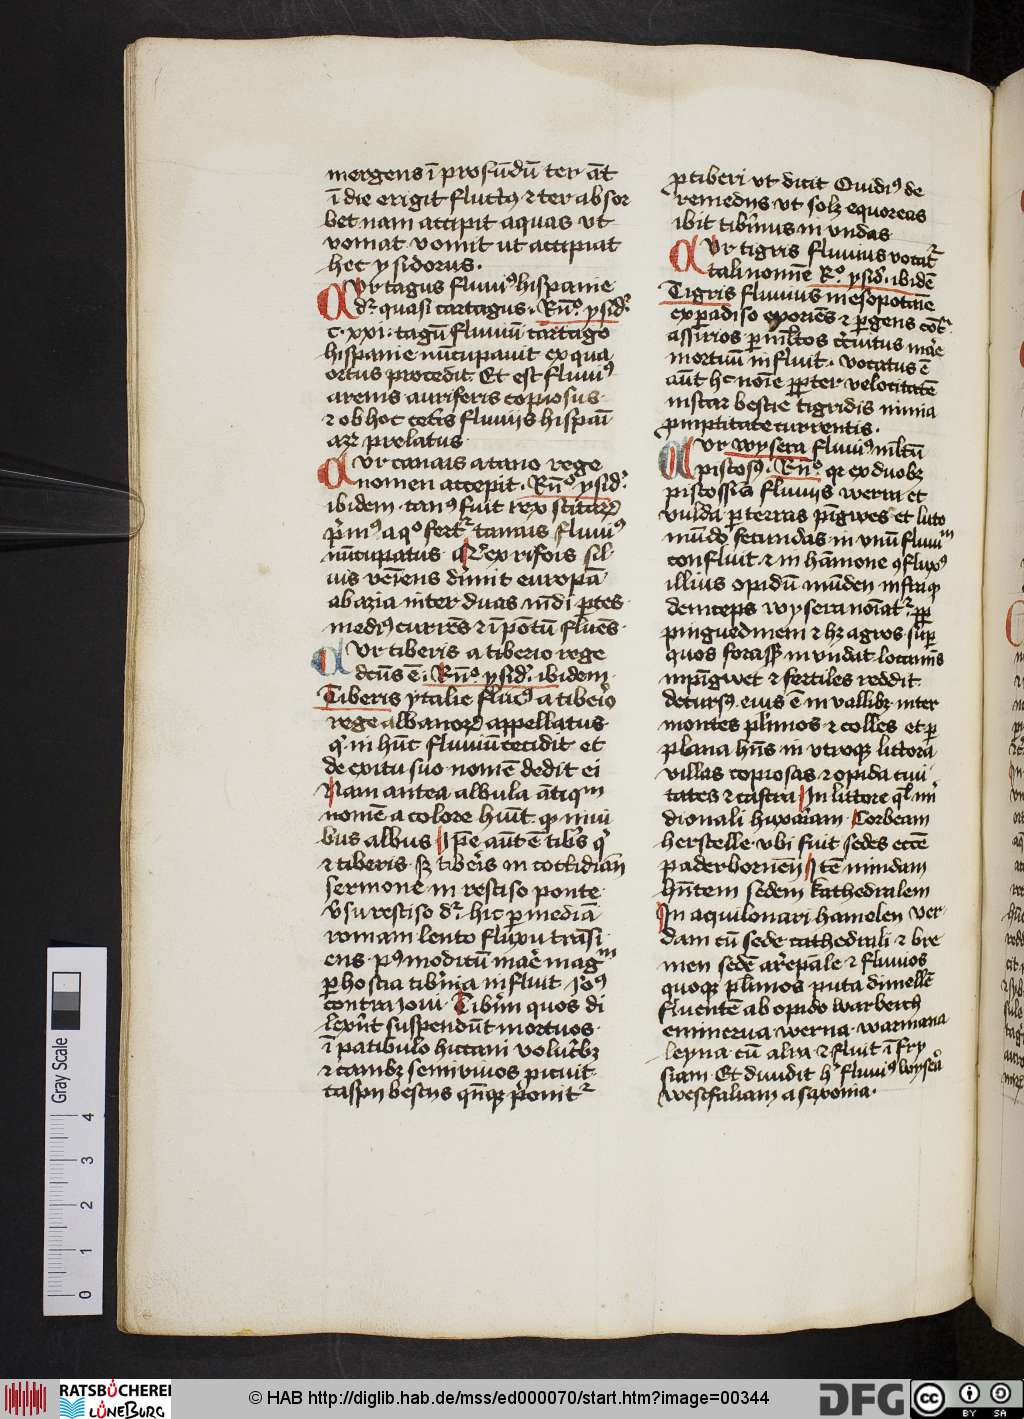 mergens ī profūdū ter aūt
ī die erigit fluctꝰ ⁊ ter absor
bet nam accipit aquas vt
vomat vomit ut accipiat
hec ysidorus.
Ur tagus fluuiꝰ hispanie
dr̄ quasi cartagus. Rn̄º ysid'
c. xxi. tagū fluuiū cartago
hispanie nūcupauit ex qua
ortus procedit Et est fluuiꝰ
arenis auriferis copiosus
⁊ ob hoc cet̄is fluuijs hispaī
arꝝ prelatus
Ur tanais a tano rege
nomen accepit. Rn̄º ysid'
ibidem tanꝰ fuit rex scitarꝝ
p̄mꝰ a qº fert̄ tanais fluuiꝰ
nūcupatus q̄ ex rifeis sil
uis veīens dīmit europā
ab azia inter duas mūdi ꝑtes
mediꝰ currēs ⁊ ī pōtū fluēs
Ur tiberis a tiberio rege
dcūs ē. Rn̄º ysid' ibidem
Tiberis ytalie fluuiꝰ a tiberīo
rege albanorꝝ appellatus
qꝛ in hūc fluuiū cecidit et
de exitu suo nomē dedit ei
Nam antea albula ātiqm
nomē a colore huīt qꝛ niui
bus albus Ip̄e aūt ē tibris qꝛ
⁊ tiberis sꝫ tiberis in cottidiāū
sermone in resciso ponte
vsu resciso dr̄ hic ꝑ mediā
romam lento fluxu trāsi
ens pꝰ modicū mare magm
ꝑ hostia tibīna influit
contra ioui Tibrim quos di
lexīt suspendūt mortuos
ī patibulo hircani volucrbꝫ
⁊ canibꝫ semiuiuos piciūt
caspii bestiis qn̄qꝫ ponit̄
ꝑ tiberi vt dicit Ouidiꝰ de
remediis vt solꝫ equoreas
ibit tibrinus in vndas
Ur tigris fluuius vocat̄
tali nomīe Rº ysid' ibidē
Tigris fluuius mesopotāīe
ex ꝑadiso exoriēs ⁊ ꝑgens cōt̄
assirios ꝑ mltos circuitus mare
mortuū influit. vocatus ē
aūt hͦ noīe ꝓpter velocitatē
instar bestie tigridis nimia
ꝓmptitate currentis.
Ur wysera fluuiꝰ mltū
piscosꝰ. Rn̄º qꝛ ex duobꝫ
piscossis fluuijs werra et
vulda ꝑ terras pīgwes et luto
mūdo fecundas in vnū fluuiūm
confluit ⁊ in hāmone ꝯfluxꝰ
illius opidū mūden infraqꝫ
deinceps wysera noīat̄ ꝓpͭ
pinguedinem ⁊ hꝫ agros suꝑ
quos forassꝫ inundat locaīns
inpīgwet ⁊ fertiles reddit
decursꝰ eius ē in vallibꝫ inter
montes plimos ⁊ colles et ꝑ
plana hn̄s in vtroqꝫ littora
villas copiosas ⁊ opida ciui
tates ⁊ castra In littore ql mi
dionali huxariam Corbeam
herstelle vbi fuit sedes eccē
paderborneñ Itē mindam
hn̄tem sedem kathedralem
In aquilonari hamelen ver
dam cū sede cathedrali ⁊ bre
men sedē archiepāle ⁊ fluuios
quoqꝫ plimos puta dimellē
fluentē ab opido warberch
eminerua werna warmana
leyna cū alra ⁊ fluit ī fry
siam Et diuidit hͥ fluuiꝰ wysera
westfaliam a saxonia.
Gray Scale
0 1 2 3 4
RATSBÜCHEREI
LÜNEBURG
© HAB http://diglib.hab.de/mss/ed000070/start.htm?image=00344
DFG
cc
BY SA